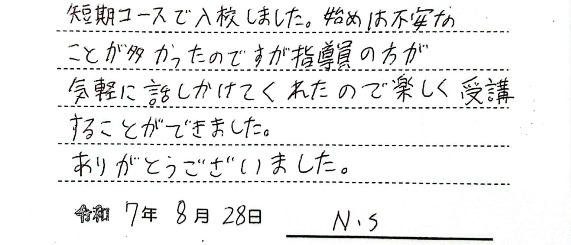 短期コースで入校しました。始めは不安な
ことが多かったのですが指導員の方が
気軽に話しかけてくれたので楽しく受講
することができました。
ありがとうございました。
令和 7年 8月 28日 N.S